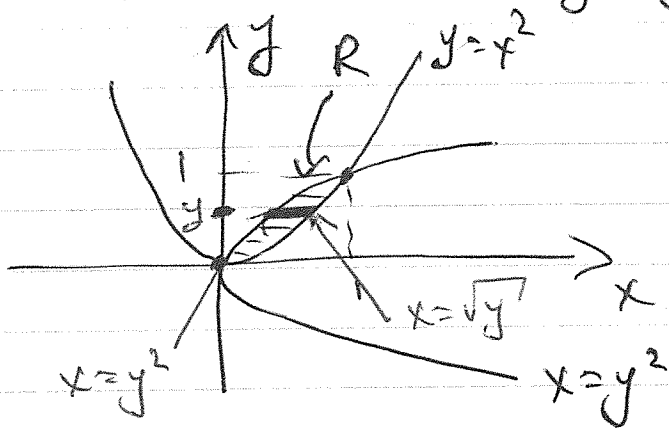 y
R
y=x²
1
y
1
x
x=√y
x=y²
x=y²